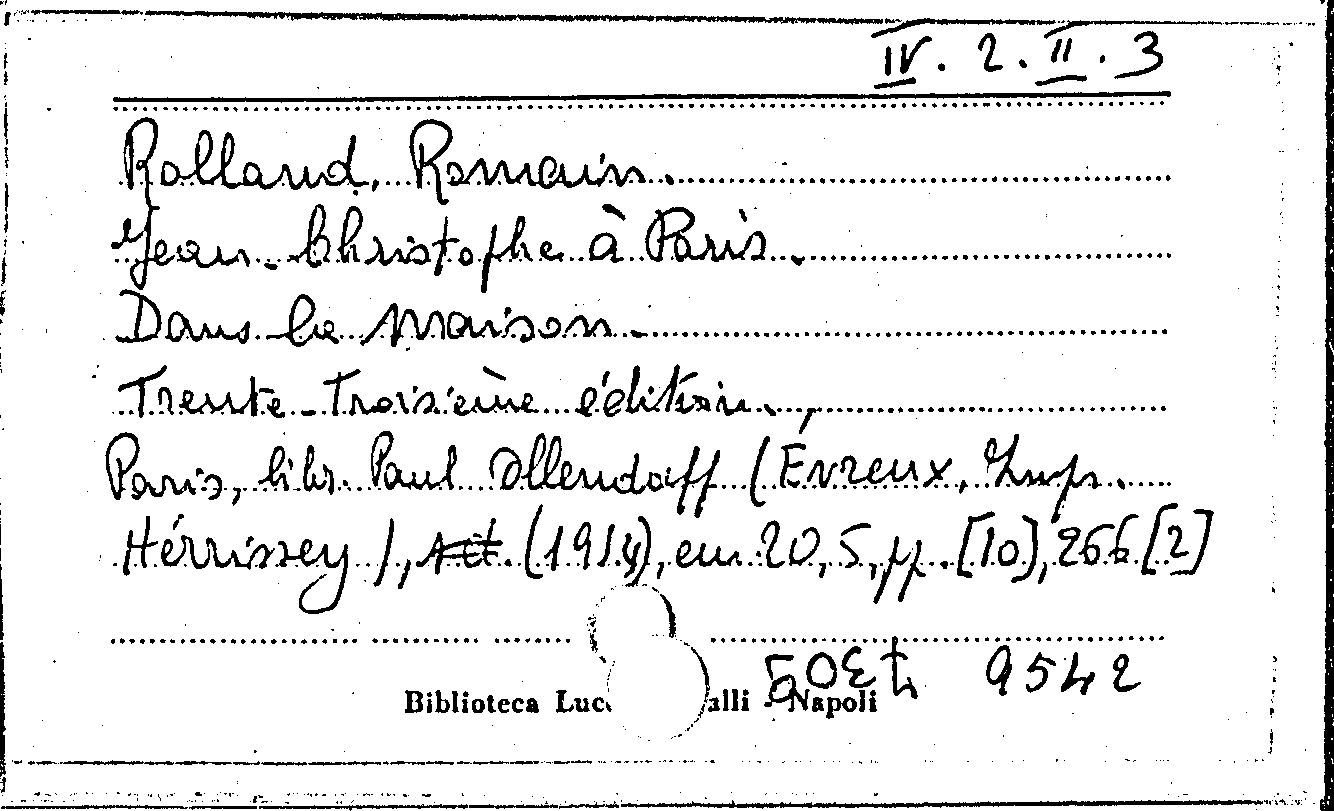 IV. 2. II. 3
Rolland, Romain.
Jean-Christophe à Paris.
Dans la Maison.
Trente-Troisième édition.,
Paris, libr. Paul Ollendorff (Évreux, Imp.
Hérissey), (1914), cm 20,5, pp. [10], 266 [2]
9542
Biblioteca Luc alli - Napoli